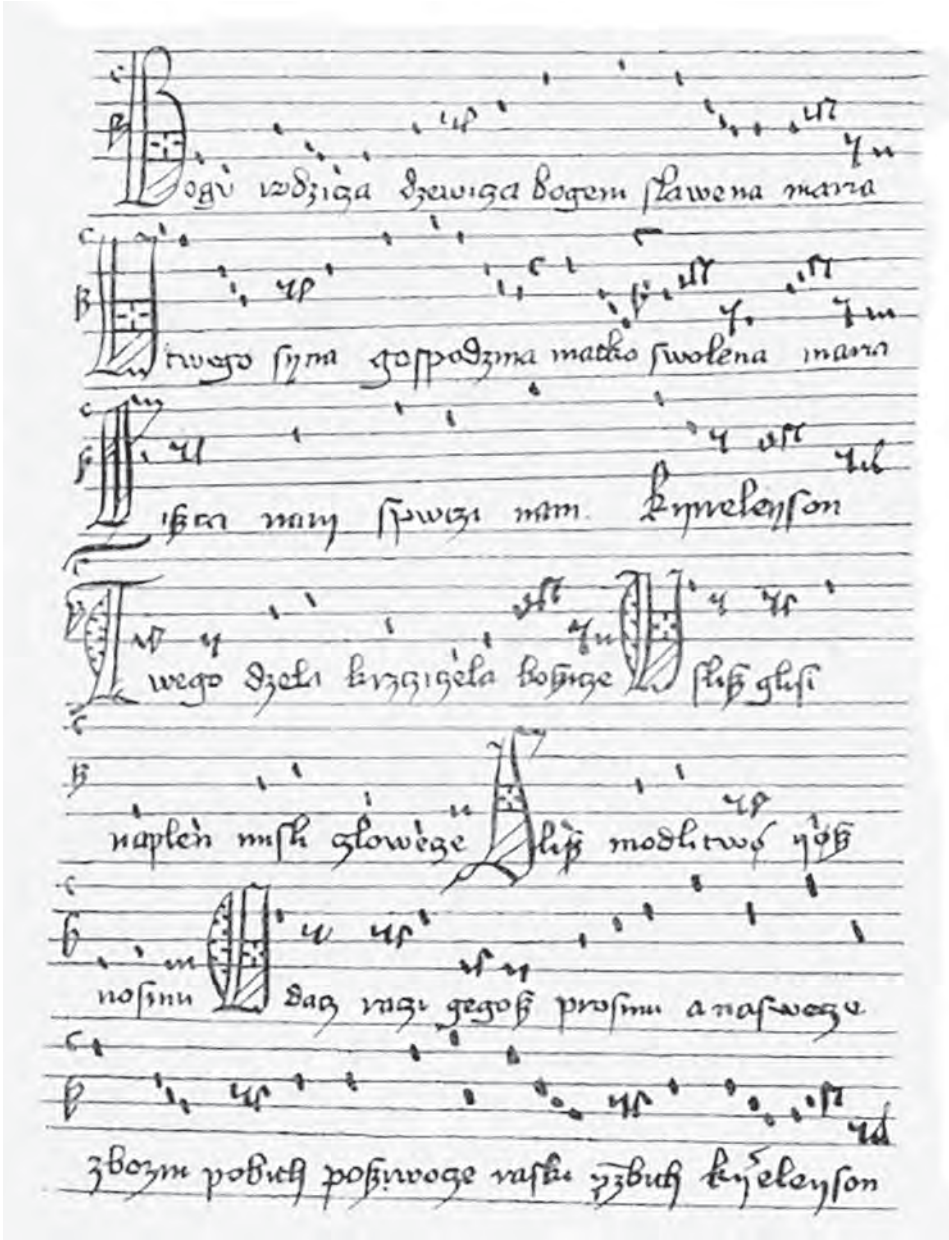 Bogu rodzicza dzewicza bogem ſlawena maria
U twego ſyna goſpodzina matko ſwolena maria
nam ſpwczi nam. Kyrieleyſon
Twego dzela krzcziczela boßicze Uſliß gloſi
naplen miſli człowecze Sliß modlitwø yøß
noſimi dacz raczi gegoß proſimi a naſwecze
zbozni pobith poßiwocze raſki kyeleyſon